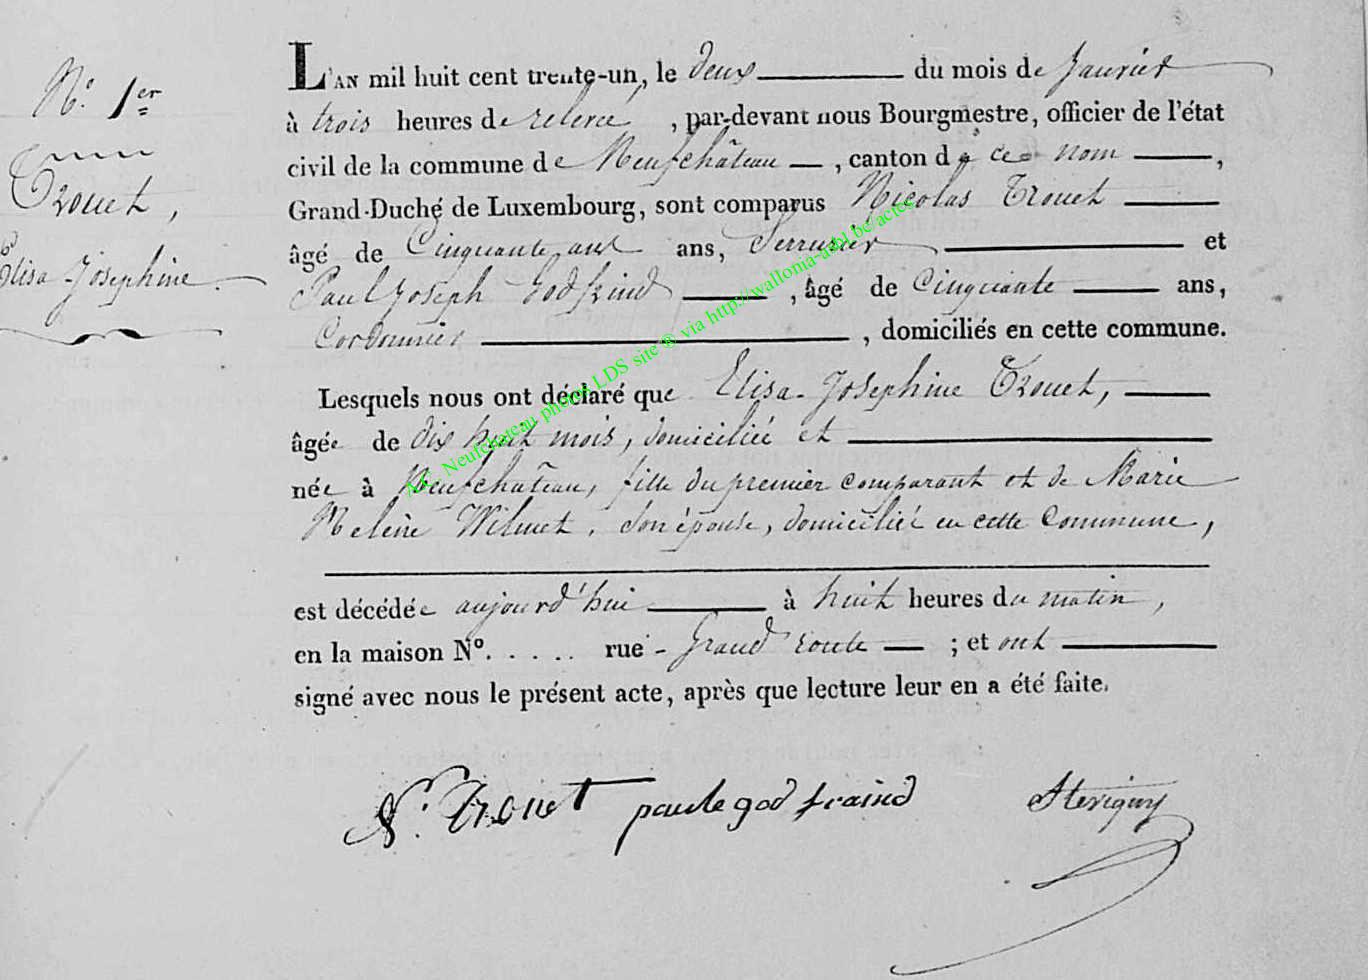 N.º 1er
Trouet,
Elisa-Josephine.
L'AN mil huit cent trente-un, le deux du mois de Janvier
à trois heures de relevée, par-devant nous Bourgmestre, officier de l'état
civil de la commune de Neufchâteau, canton de ce nom,
Grand-Duché de Luxembourg, sont comparus Nicolas Trouet
âgé de Cinquante ans, Serrurier et
Paul Joseph Godfrind, âgé de Cinquante ans,
Cordonnier, domiciliés en cette commune.
Lesquels nous ont déclaré que Elisa-Josephine Trouet,
âgée de dix huit mois, domiciliée et
née à Neufchâteau, fille du premier comparant et de Marie
Helène Wilmet, son épouse, domicilié en cette Commune,
est décédée aujourd'hui à huit heures du matin,
en la maison Nº. . . . . . rue - Grand route ; et ont
signé avec nous le présent acte, après que lecture leur en a été faite.
N. Trouet paule god fraind
Neufchateau photos LDS site ® via http://wallonia-asbl.be/actes